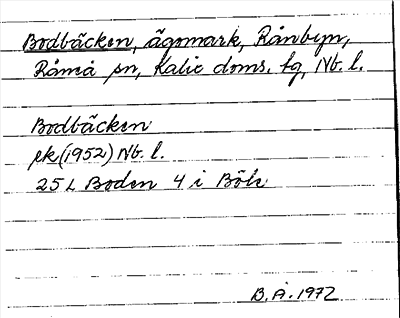 Bodbäcken, ägomark, Rånbyn,
Råneå sn, Kalix doms. tg, Nb. l.
Bodbäcken
ek (1952) Nb. l.
25 L Boden 4 i Böle
B. Å. 1972